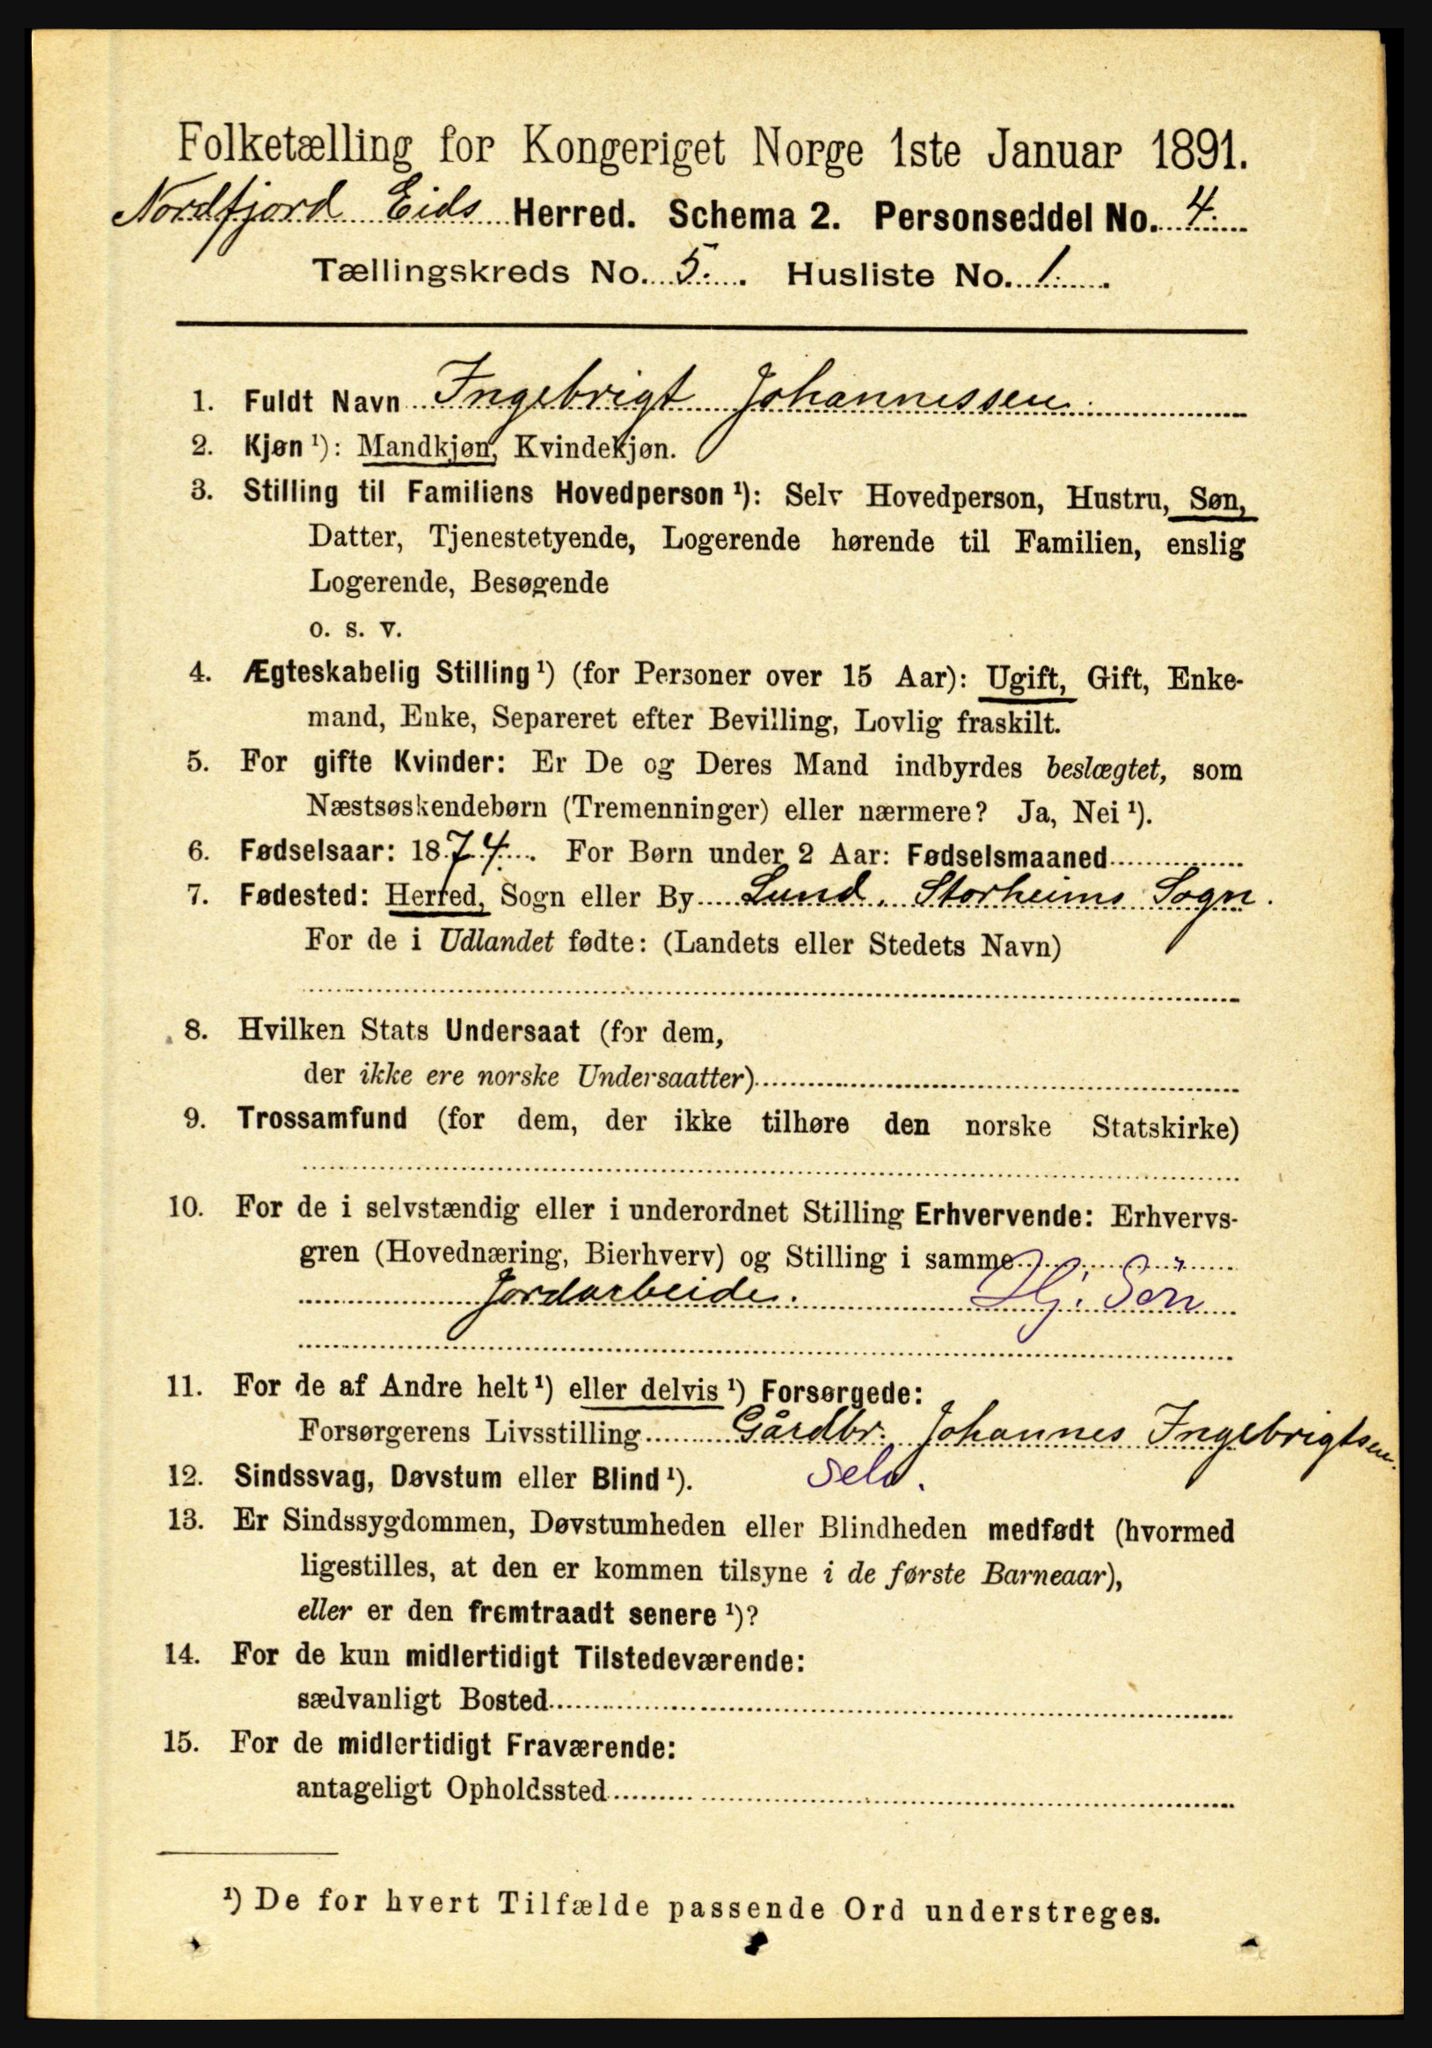 Folketælling for Kongeriget Norge 1ste Januar 1891.
Nordfjord Eids Herred. Schema 2. Personseddel No. 4.
Tællingskreds No. 5. Husliste No. 1.
1. Fuldt Navn Ingebrigt Johannessen
2. Kjøn ¹): Mandkjøn, Kvindekjøn.
3. Stilling til Familiens Hovedperson ¹): Selv Hovedperson, Hustru, Søn,
Datter, Tjenestetyende, Logerende hørende til Familien, enslig
Logerende, Besøgende
o. s. v.
4. Ægteskabelig Stilling ¹) (for Personer over 15 Aar): Ugift, Gift, Enke-
mand, Enke, Separeret efter Bevilling, Lovlig fraskilt.
5. For gifte Kvinder: Er De og Deres Mand indbyrdes beslægtet, som
Næstsøskendebørn (Tremenninger) eller nærmere? Ja, Nei ¹).
6. Fødselsaar: 1874. For Børn under 2 Aar: Fødselsmaaned
7. Fødested: Herred, Sogn eller By Lund. Storheims Sogn.
For de i Udlandet fødte: (Landets eller Stedets Navn)
8. Hvilken Stats Undersaat (for dem,
der ikke ere norske Undersaatter)
9. Trossamfund (for dem, der ikke tilhøre den norske Statskirke)
10. For de i selvstændig eller i underordnet Stilling Erhvervende: Erhvervs-
gren (Hovednæring, Bierhverv) og Stilling i samme
Jordarbeide. Hj. Sön
11. For de af Andre helt ¹) eller delvis ¹) Forsørgede:
Forsørgerens Livsstilling Gårdbr. Johannes Ingebrigtsen.
12. Sindssvag, Døvstum eller Blind ¹). Selv.
13. Er Sindssygdommen, Døvstumheden eller Blindheden medfødt (hvormed
ligestilles, at den er kommen tilsyne i de første Barneaar),
eller er den fremtraadt senere ¹)?
14. For de kun midlertidigt Tilstedeværende:
sædvanligt Bosted
15. For de midlertidigt Fraværende:
antageligt Opholdssted
¹) De for hvert Tilfælde passende Ord understreges.